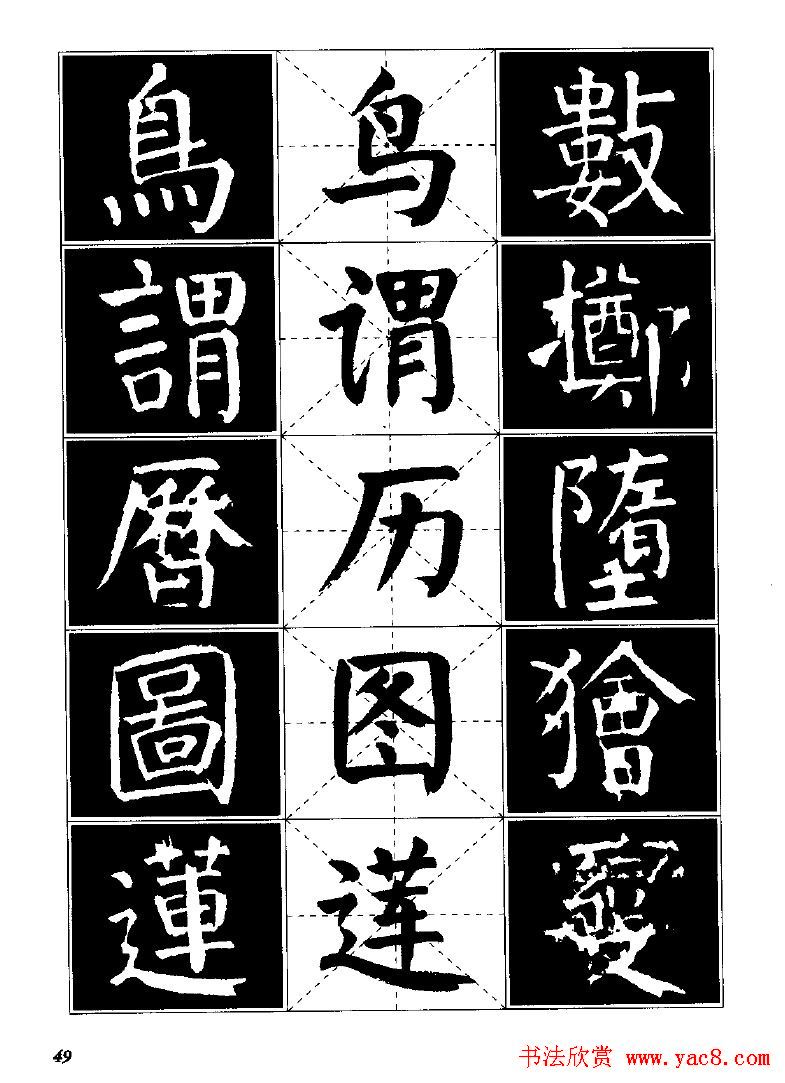 鳥 鸟 數
謂 谓 擲
曆 历 墮
圖 图 獪
蓮 莲
49
书法欣赏 www.yac8.com